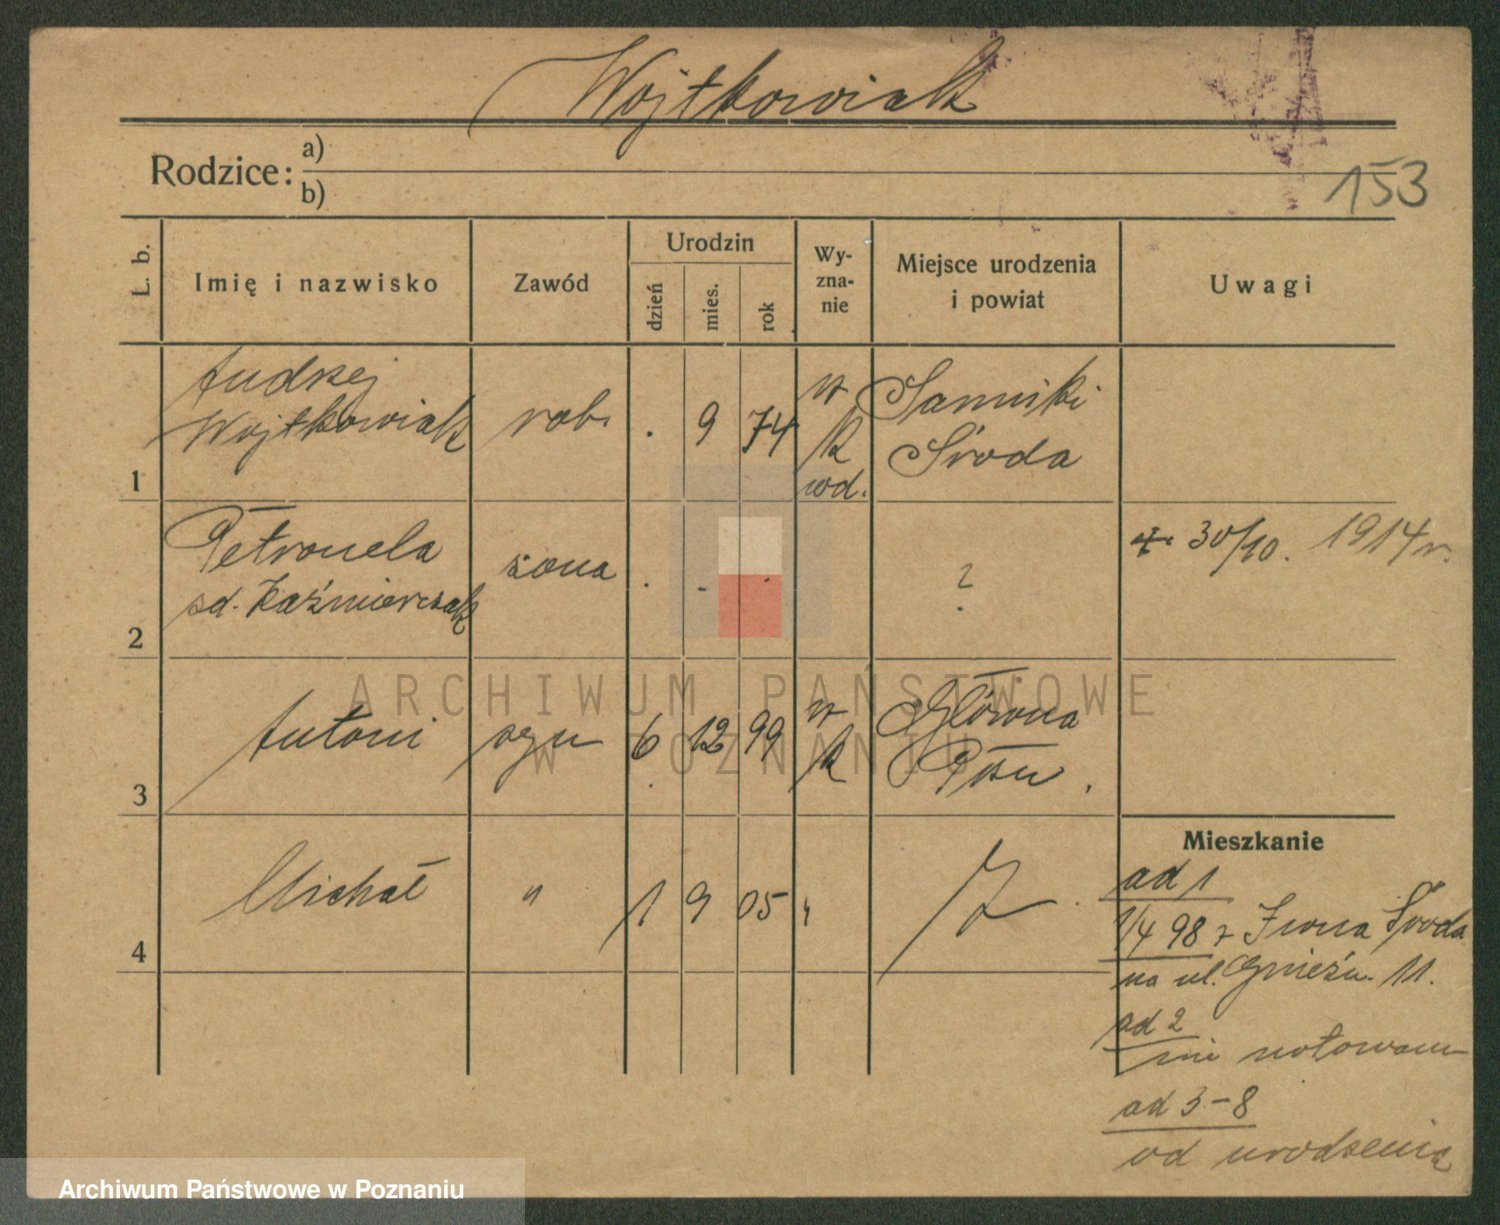 Wojtkowiak
Rodzice: a)
b)
153
L. b.
Imię i nazwisko
Zawód
Urodzin
dzień
mies.
rok
Wy-
zna-
nie
Miejsce urodzenia
i powiat
Uwagi
1
Andrzej
Wojtkowiak
rob.
. 9 74
k
wd.
Środa
2
Petronela
Kaźmierczak
żona
. - .
?
+ 30/10. 1914 r.
3
Antoni
syn
6 12 99
k
Główna
Pozn.
4
Michał
"
1 9 05
"
Mieszkanie
ad 1
1/4 98 z Środa
na ul. Gnieźn. 11.
ad 2
nie notowana
ad 3-8
od urodzenia
ARCHIWUM PAŃSTWOWE
W POZNANIU
Archiwum Państwowe w Poznaniu